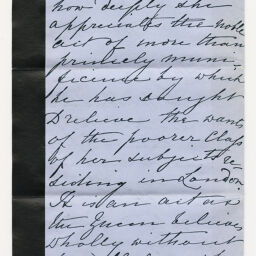 how deeply she
appreciates the noble
act of more than
princely muni-
ficence by which
he has sought
to relieve the wants
of the poorer class
of her subjects re-
siding in London.
It is an act as
the Queen believes
wholly without